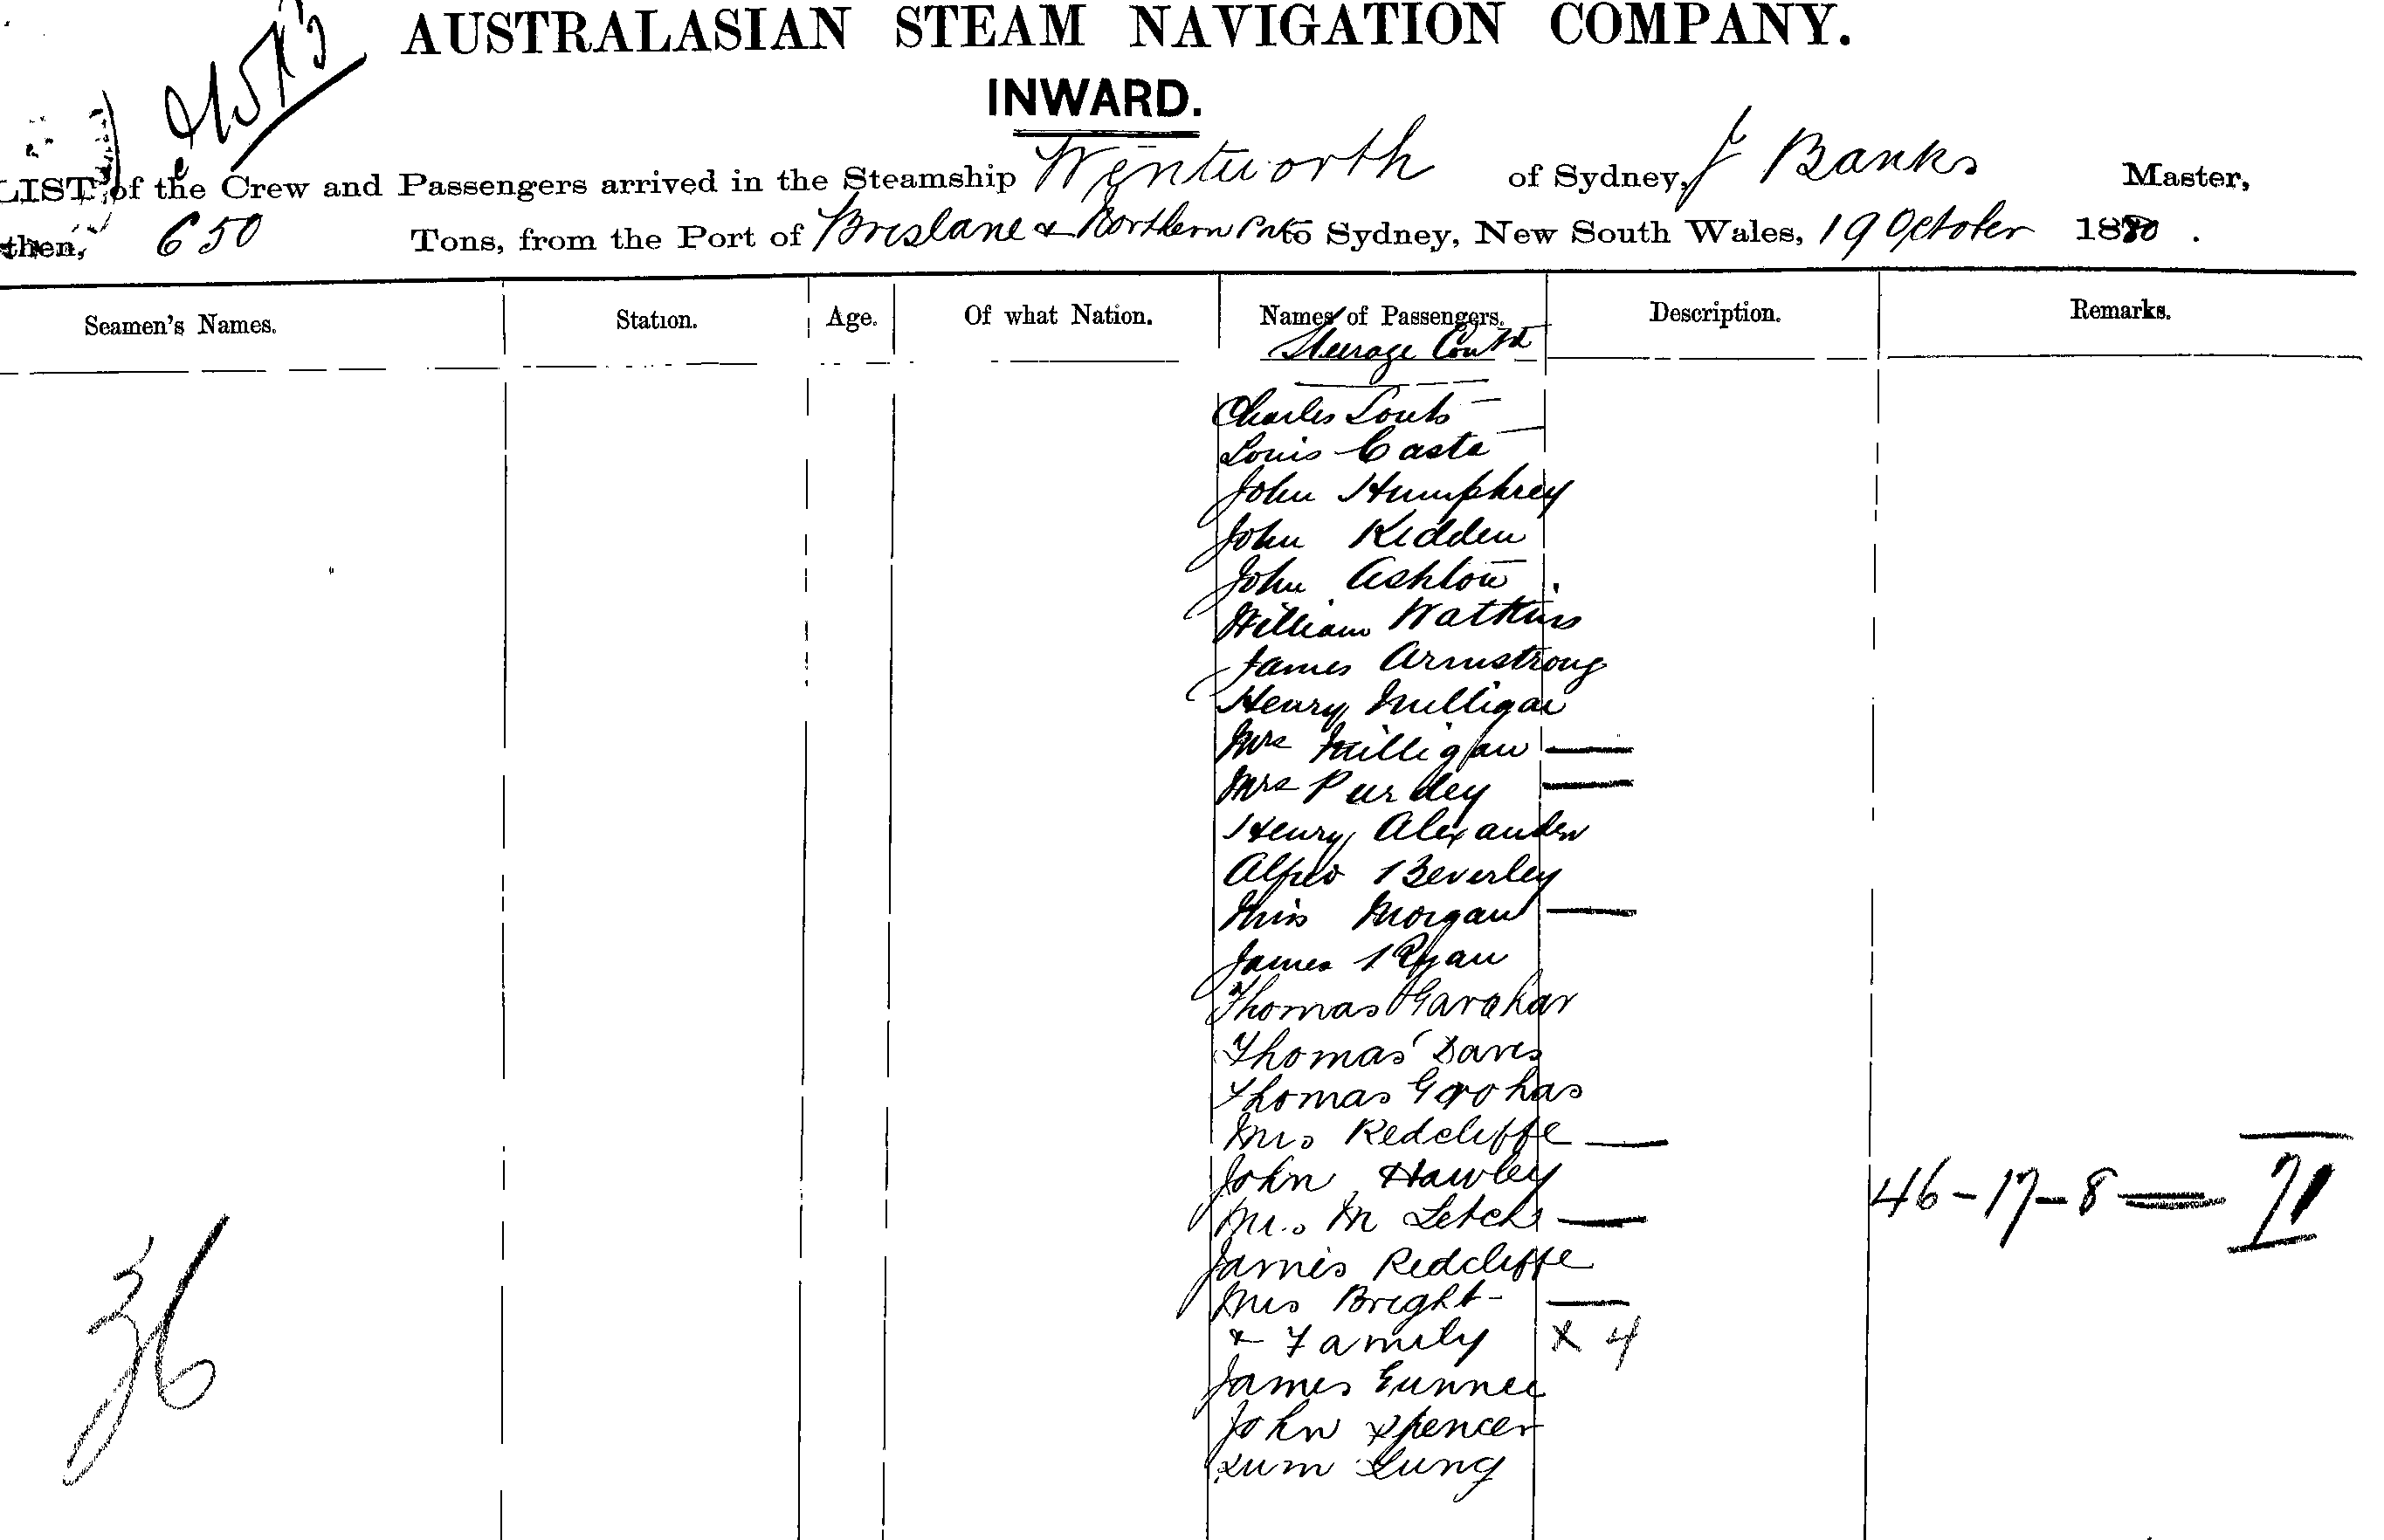 AUSTRALASIAN STEAM NAVIGATION COMPANY.
INWARD.
LIST of the Crew and Passengers arrived in the Steamship Wentworth of Sydney, J Banks Master,
then, 650 Tons, from the Port of Brisbane & Northern Pts to Sydney, New South Wales, 19 October 1880.
Seamen's Names. Station. Age. Of what Nation. Names of Passengers. Description. Remarks.
Steerage Contd
Charles
Louis Casta
John Humphrey
John Kidden
John Ashton
William Watkins
James Armstrong
Henry Milligan
Mrs Milligan
Mrs Purdey
Henry Alexander
Alfred Beverley
Miss Morgan
James Ryan
Thomas
Thomas Davis
Thomas
Mrs Redcliffe
John Hawley
46-17-8 = 71
M
James Redcliffe
Mrs Bright
& Family x 4
36
James
John Spencer
Lung